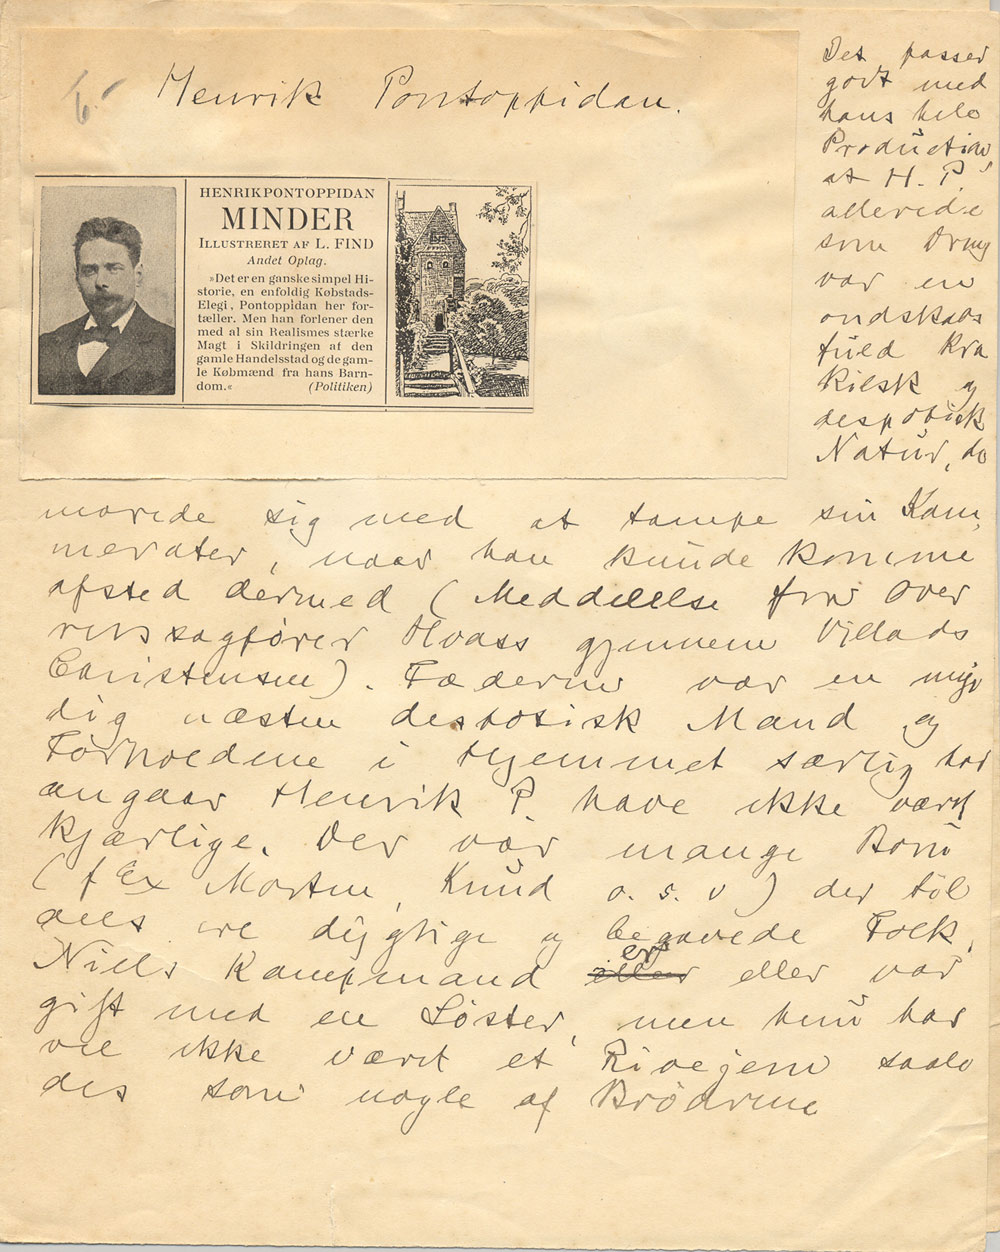 6.-
Henrik Pontoppidan.
HENRIK PONTOPPIDAN
MINDER
ILLUSTRERET AF L. FIND
Andet Oplag.
»Det er en ganske simpel Hi-
storie, en enfoldig Købstads-
Elegi, Pontoppidan her for-
tæller. Men han forlener den
med al sin Realismes stærke
Magt i Skildringen af den
gamle Handelsstad og de gam-
le Købmænd fra hans Barn-
dom.« (Politiken)
Det passer
godt med
hans hele
Production,
at H. P.
allerede
som Dreng
var en
ondskabs
fuld kra
kilsk og
despotisk
Natur, de
morede sig med at tampe sin Kam,
merater, naar han kunde komme
afsted dermed (Meddelelse fra Over
retssagfører Hvass gjennem Villads
Christensen). Faderen var en myn
dig næsten despotisk Mand og
Forholdene i Hjemmet særlig hvad
angaar Henrik P. have ikke været
kjærlige. Der var mange Børn
(f Ex Morten, Knud o. s. v) der til
dels ere dygtige og begavede Folk.
Niels Kampmand er eller var
gift med en Søster, men hun har
vel ikke været et Rivejern saale
des som nogle af Brødrene